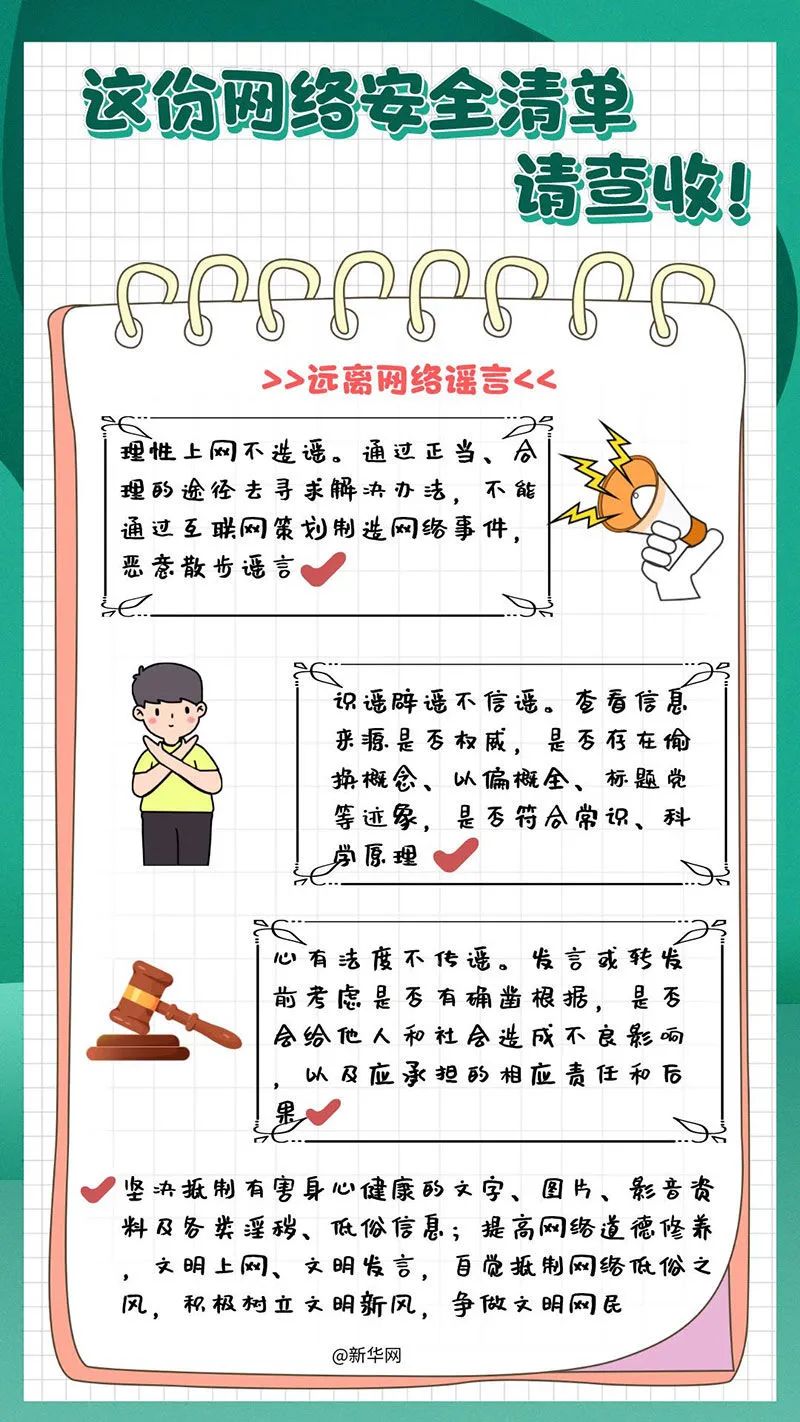 这份网络安全清单
请查收!
>>远离网络谣言<<
理性上网不造谣。通过正当、合
理的途径去寻求解决办法，不能
通过互联网策划制造网络事件，
恶意散步谣言
识谣辟谣不信谣。查看信息
来源是否权威，是否存在偷
换概念、以偏概全、标题党
等迹象，是否符合常识、科
学原理
心有法度不传谣。发言或转发
前考虑是否有确凿根据，是否
会给他人和社会造成不良影响
，以及应承担的相应责任和后
果
坚决抵制有害身心健康的文字、图片、影音资
料及各类淫秽、低俗信息；提高网络道德修养
，文明上网、文明发言，自觉抵制网络低俗之
风，积极树立文明新风，争做文明网民
@新华网